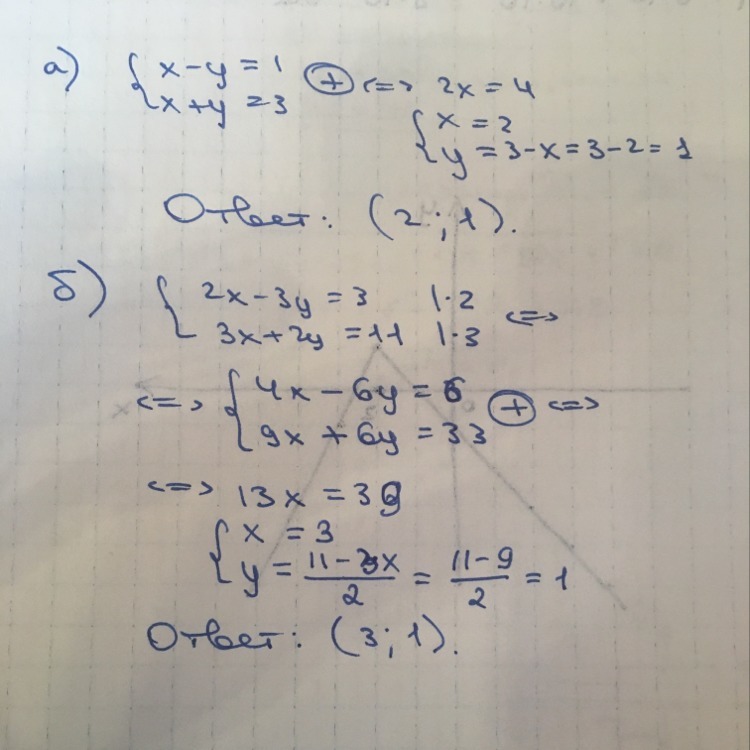 а) { x-y = 1 ⊕ <=> 2x = 4
x+y = 3
{ x = 2
y = 3-x = 3-2 = 1
Ответ: (2; 1).
б) { 2x-3y = 3 |·2
3x+2y = 11 |·3 <=>
<=> { 4x - 6y = 6
9x + 6y = 33 ⊕ <=>
<=> 13x = 39
{ x = 3
y = (11-3x)/2 = (11-9)/2 = 1
Ответ: (3; 1).